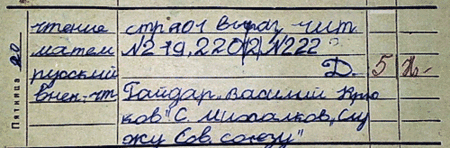 Пятница 20
чтение стр 101 выраз чит.
матем №219, 220(2), №222
русский Д. 5
внек. чт Гайдар "Василий Крю
ков" С. Михалков, "Слу
жу Сов. союзу"